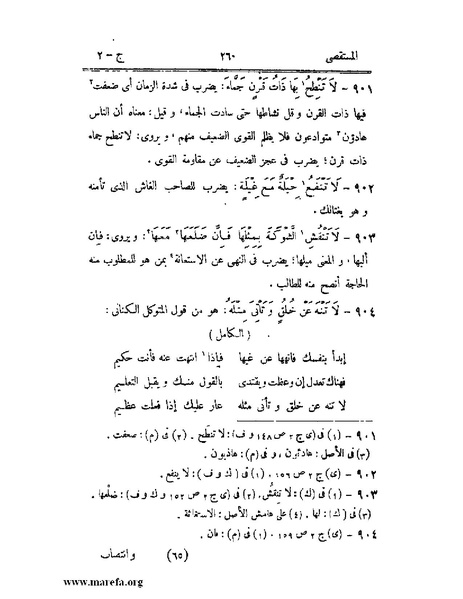 المستقصى ٢٦٠ ج – ٢
٩٠١ – لَا تَنْطَحُ١ بِهَا ذَاتُ قَرْنٍ جَمَّاءَ: يضرب فى شدة الزمان أى ضعفت٢
فيها ذات القرن و قل نشاطها حتى سادت الجماء، و قيل: معناه أن الناس
هادؤن٣ متوادعون فلا يظلم القوى الضعيف منهم، و يروى: لا تنطح جماء
ذات قرن؛ يضرب فى عجز الضعيف عن مقاومة القوى.
٩٠٢ – لَا تَنْفَعُ١ حِيْلَةٌ مَعَ غِيْلَةٍ: يضرب للصاحب الغاش الذى تأمنه
و هو يغتالك.
٩٠٣ – لَا تَنْقُشِ١ الشَّوْكَةَ بِمِثْلِهَا فَإِنَّ ضَلَعَهَا٢ مَعَهَا٣: و يروى: فإن
ألبها، و المعنى ميلها؛ يضرب فى النهى عن الاستعانة٤ بمن هو للمطلوب منه
الحاجة أنصح منه للطالب.
٩٠٤ – لَا تَنْهَ عَنْ خُلُقٍ وَ تَأْتِىَ مِثْلَهُ: هو من قول المتوكل الكنانى:
(الكامل)
إبدأ بنفسك فانهها عن غيها فإذا١ انتهت عنه فأنت حكيم
فهناك تعدل إن وعظت ويقتدى بالقول منك و يقبل التعليم
لا تنه عن خلق و تأتى مثله عار عليك إذا فعلت عظيم
٩٠١ – (١) فى (ى ج ٢ ص ١٤٨ و ف): لا تنطح. (٢) فى (م): صعفت.
(٣) فى الأصل: هادئون، و فى (م): هاديون.
٩٠٢ – (ى) ج ٢ ص ١٥٦. (١) فى (ك و ف): لا ينفع.
٩٠٣ – (١) فى (ك): لا تنقش. (٢) فى (ى ج ٢ ص ١٥٢ و ك و ف): ضلعها.
(٣) فى (ك): لها. (٤) على هامش الأصل: الاستغاثة.
٩٠٤ – (ى) ج ٢ ص ١٥٩. (١) فى (م): فان.
(٦٥) و انتصاب
www.marefa.org